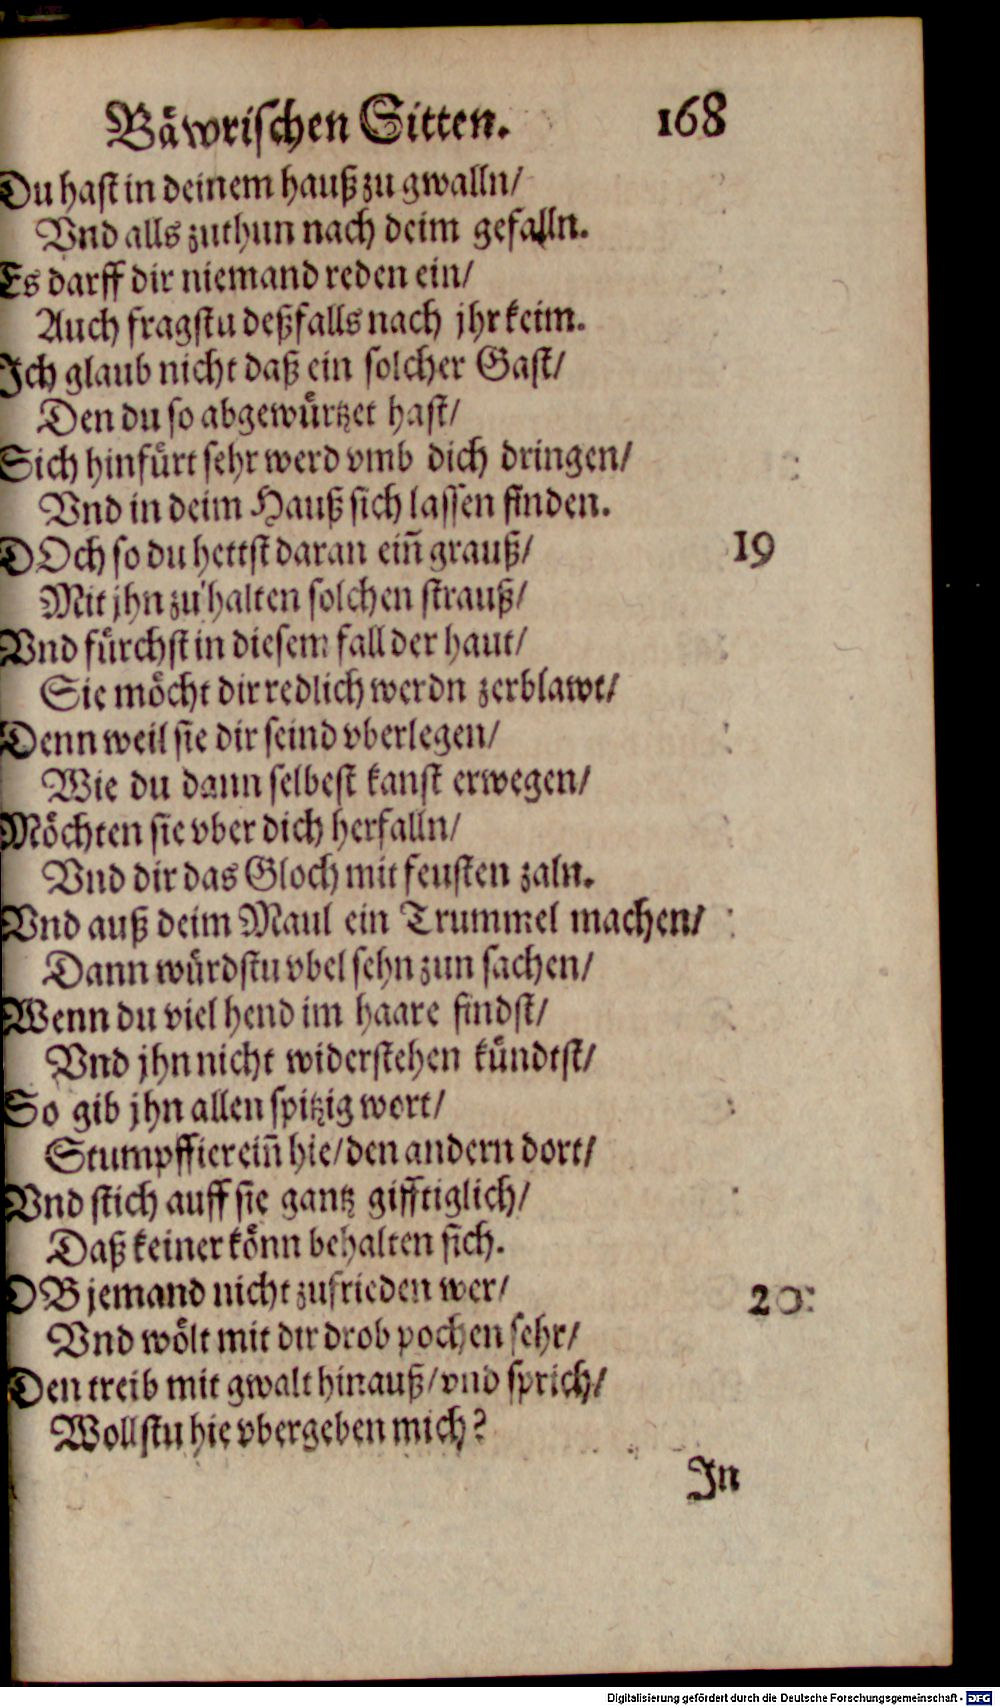 Bäwrischen Sitten. 168
Du hast in deinem hauß zu gwalln/
Vnd alls zuthun nach deim gefalln.
Es darff dir niemand reden ein/
Auch fragstu deßfalls nach jhr keim.
Ich glaub nicht daß ein solcher Gast/
Den du so abgewürtzet hast/
Sich hinfürt sehr werd vmb dich dringen/
Vnd in deim Hauß sich lassen finden.
DOch so du hettst daran eiñ grauß/ 19
Mit jhn zu halten solchen strauß/
Vnd fürchst in diesem fall der haut/
Sie möcht dir redlich werdn zerblawt/
Denn weil sie dir seind vberlegen/
Wie du dann selbest kanst erwegen/
Möchten sie vber dich herfalln/
Vnd dir das Gloch mit feusten zaln.
Vnd auß deim Maul ein Trummel machen/
Dann würdstu vbel sehn zun sachen/
Wenn du viel hend im haare findst/
Vnd jhn nicht widerstehen kündtst/
So gib jhn allen spitzig wort/
Stumpffier eiñ hie/ den andern dort/
Vnd stich auff sie gantz gifftiglich/
Daß keiner könn behalten sich.
OB jemand nicht zufrieden wer/ 20
Vnd wölt mit dir drob pochen sehr/
Den treib mit gwalt hinauß/ vnd sprich/
Wollstu hie vbergeben mich?
In
Digitalisierung gefördert durch die Deutsche Forschungsgemeinschaft - DFG